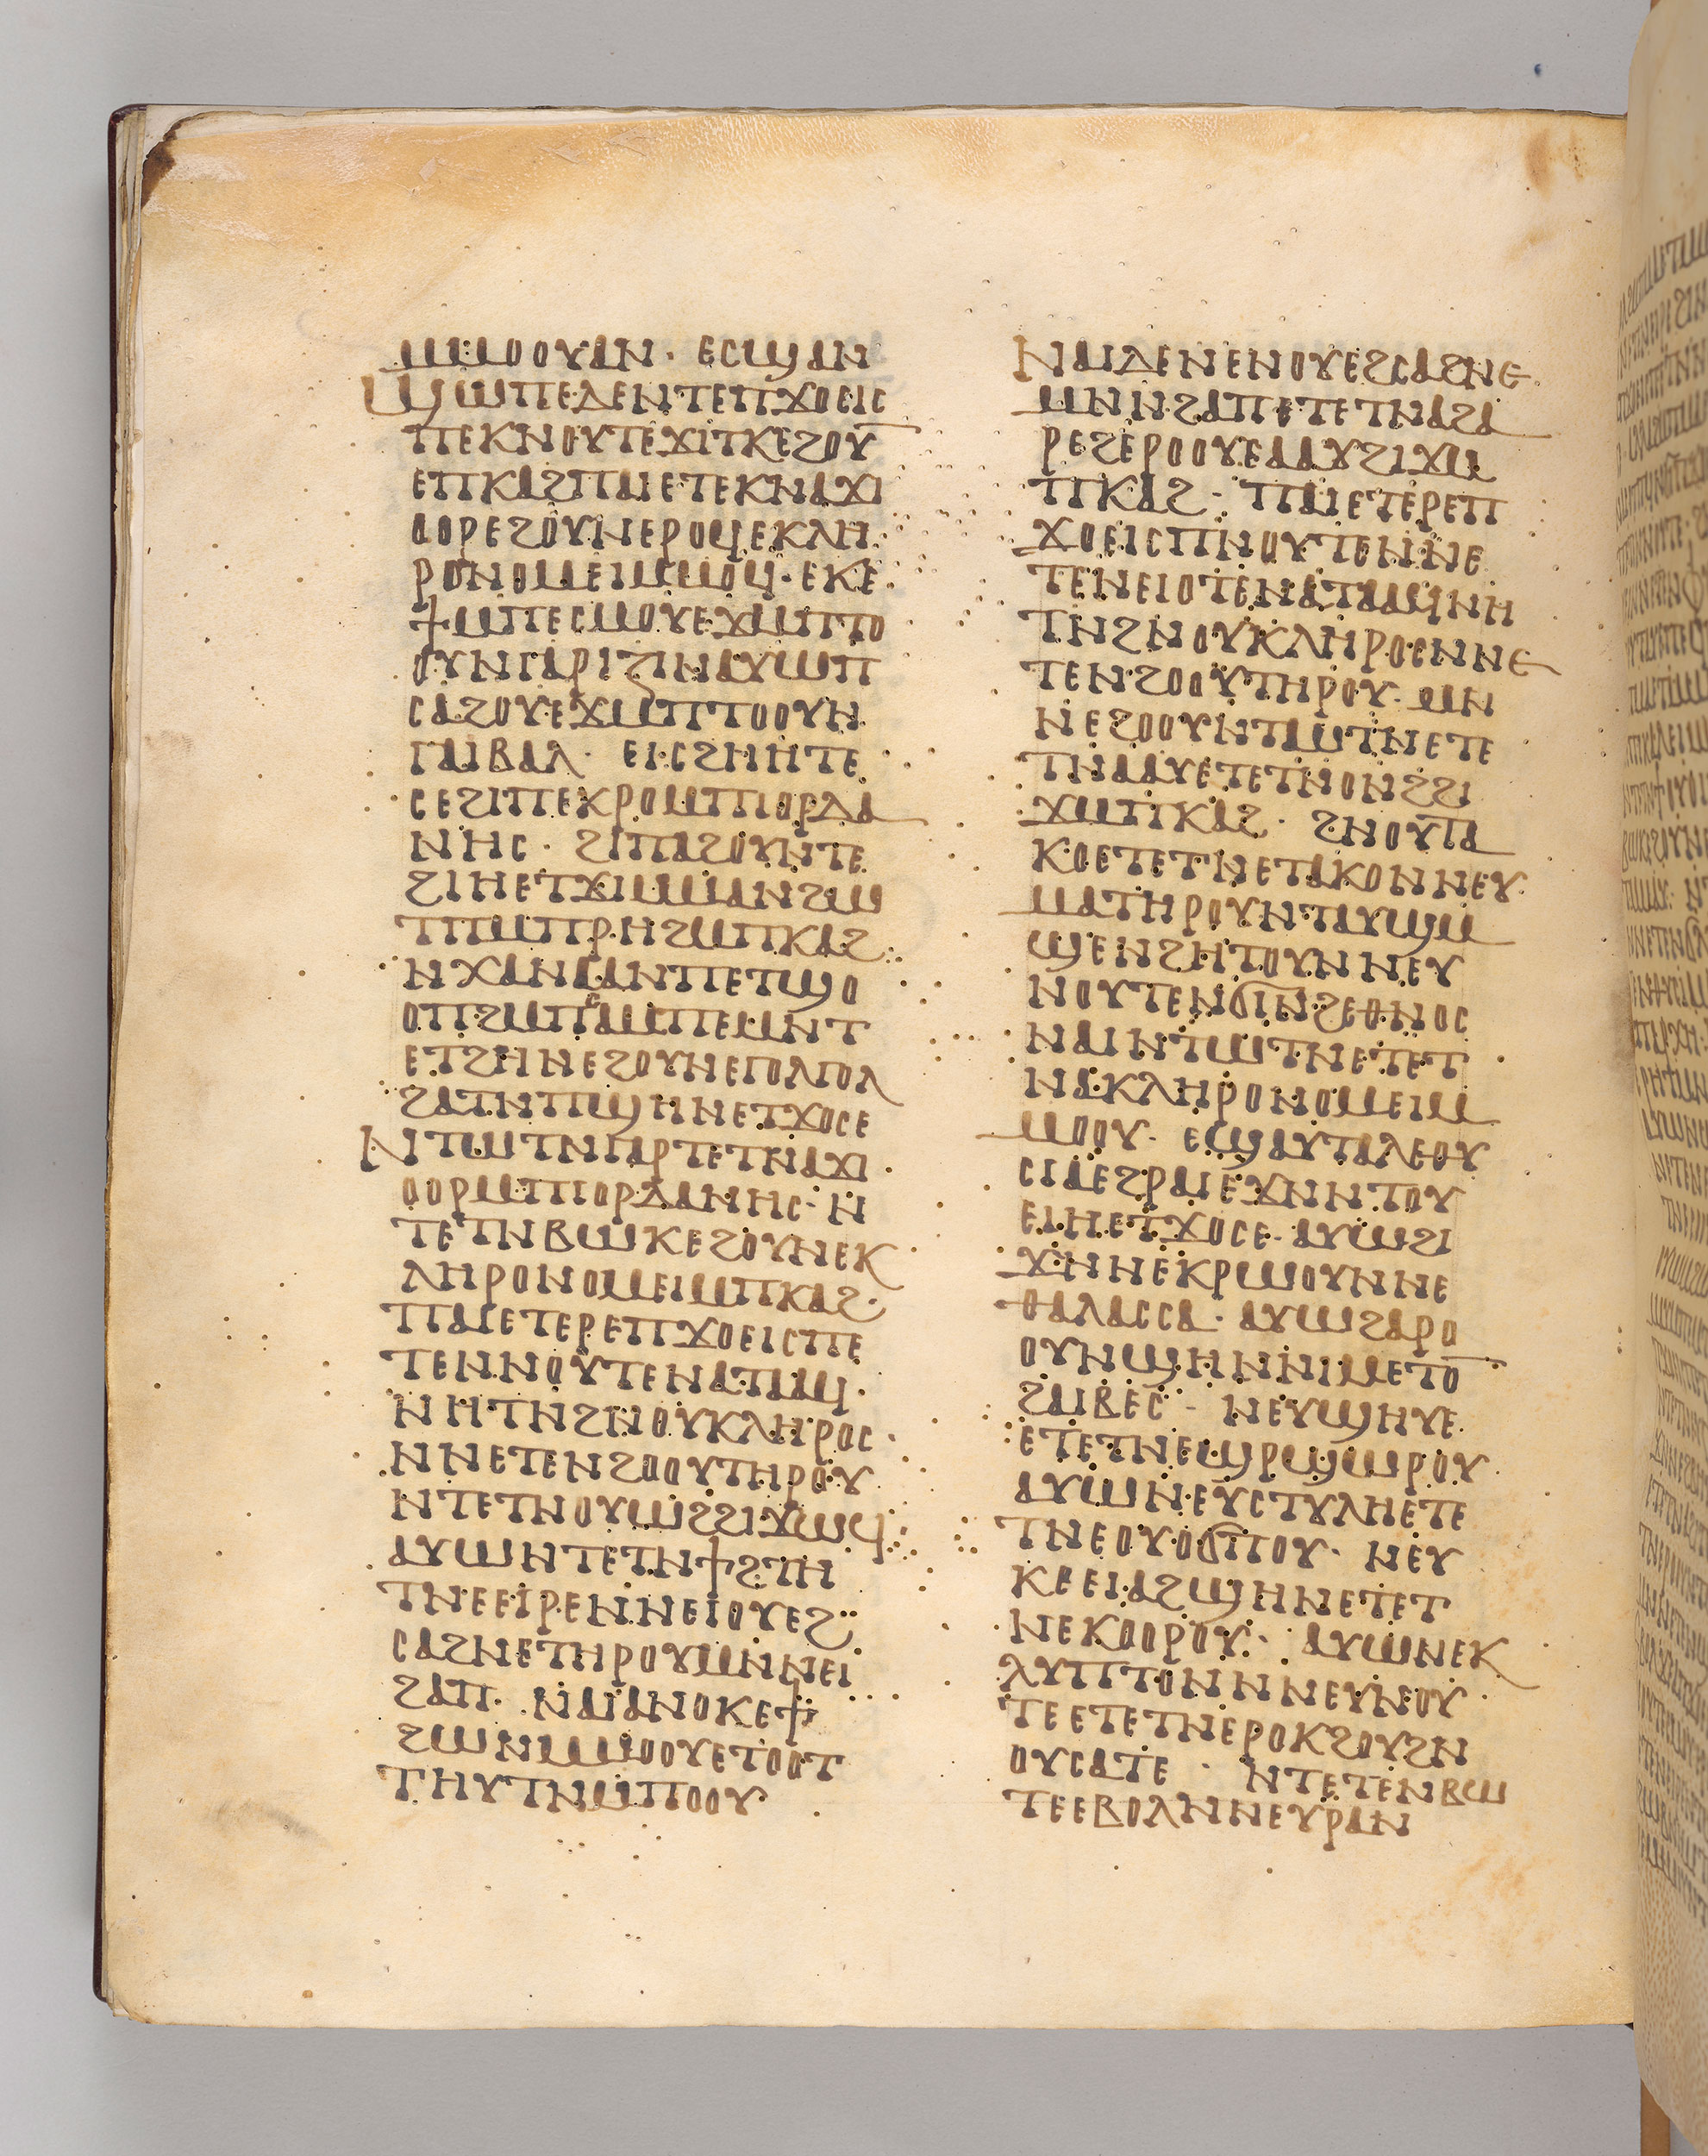 ⲙⲙⲟⲟⲩⲁⲛ· ⲉⲥϣⲁⲛ
ϣⲱⲡⲉⲇⲉⲛⲧⲉⲡϫⲟⲉⲓⲥ
ⲡⲉⲕⲛⲟⲩⲧⲉϫⲓⲧⲕⲉϩⲟⲩ
ⲉⲡⲕⲁϩⲡⲁⲓⲉⲧⲉⲕⲛⲁϫⲓ
ⲟⲟⲣⲉϩⲟⲩⲛⲉⲣⲟϥⲉⲕⲗⲏ
ⲣⲟⲛⲟⲙⲉⲓⲙⲙⲟϥ· ⲉⲕⲉ
ϯⲙⲡⲉⲥⲙⲟⲩⲉϫⲙⲡⲧⲟ
ⲟⲩⲛⲅⲁⲣⲓⲍⲓⲛⲁⲩⲱⲡ
ⲥⲁϩⲟⲩⲉϫⲙⲡⲧⲟⲟⲩⲛ
ⲅⲁⲓⲃⲁⲗ· ⲉⲓⲥϩⲏⲏⲧⲉ
ⲥⲉϩⲓⲡⲉⲕⲣⲟⲙⲡⲓⲟⲣⲇⲁ
ⲛⲏⲥ· ϩⲓⲡⲁϩⲟⲩⲛⲧⲉ
ϩⲓⲏⲉⲧϫⲓⲙⲙⲁⲛϩⲱ
ⲧⲡⲙⲡⲣⲏϩⲙⲡⲕⲁϩ
ⲛⲭⲁⲛⲁⲁⲛⲡⲉⲧϣⲟ
ⲟⲡϩⲙⲡⲥⲁⲙⲡⲉⲙⲛⲧ
ⲉⲧϩⲏⲛⲉϩⲟⲩⲛⲉⲅⲟⲗⲅⲟⲗ
ϩⲁⲧⲛⲡϣⲏⲛⲉⲧϫⲟⲥⲉ
ⲛⲧⲱⲧⲛⲅⲁⲣⲧⲉⲧⲛⲁϫⲓ
ⲟⲟⲣⲙⲡⲓⲟⲣⲇⲁⲛⲏⲥ· ⲛ
ⲧⲉⲧⲛⲃⲱⲕⲉϩⲟⲩⲛⲉⲕ
ⲗⲏⲣⲟⲛⲟⲙⲉⲓⲙⲡⲕⲁϩ·
ⲡⲁⲓⲉⲧⲉⲣⲉⲡϫⲟⲉⲓⲥⲡⲉ
ⲧⲉⲛⲛⲟⲩⲧⲉⲛⲁⲧⲁⲁϥ·
ⲛⲏⲧⲛϩⲛⲟⲩⲕⲗⲏⲣⲟⲥ·
ⲛⲛⲉⲧⲉⲛϩⲟⲟⲩⲧⲏⲣⲟⲩ
ⲛⲧⲉⲧⲛⲟⲩⲱϩϩⲓϫⲱϥ
ⲁⲩⲱⲛⲧⲉⲧⲛϯϩⲧⲏ
ⲧⲛⲉⲉⲓⲣⲉⲛⲛⲉⲓⲟⲩⲉϩ
ⲥⲁϩⲛⲉⲧⲏⲣⲟⲩⲙⲛⲛⲉⲓ
ϩⲁⲡ· ⲛⲁⲓⲁⲛⲟⲕⲉϯ
ϩⲱⲛⲙⲙⲟⲟⲩⲉⲧⲟⲟⲧ
ⲧⲏⲩⲧⲛⲙⲡⲟⲟⲩ
ⲛⲁⲓⲇⲉⲛⲉⲛⲟⲩⲉϩⲥⲁϩⲛⲉ
ⲙⲛⲛϩⲁⲡⲉⲧⲉⲧⲛⲁϩⲁ
ⲣⲉϩⲉⲣⲟⲟⲩⲉⲁⲁⲩϩⲓϫⲙ
ⲡⲕⲁϩ· ⲡⲁⲓⲉⲧⲉⲣⲉⲡ
ϫⲟⲉⲓⲥⲡⲛⲟⲩⲧⲉⲛⲛⲉ
ⲧⲉⲛⲉⲓⲟⲧⲉⲛⲁⲧⲁⲁϥⲛⲏ
ⲧⲛϩⲛⲟⲩⲕⲗⲏⲣⲟⲥⲛⲛⲉ
ⲧⲉⲛϩⲟⲟⲩⲧⲏⲣⲟⲩ· ⲙⲛ
ⲛⲉϩⲟⲟⲩⲛⲧⲱⲧⲛⲉⲧⲉ
ⲧⲛⲁⲁⲩⲉⲧⲉⲧⲛⲟⲛϩϩⲓ
ϫⲙⲡⲕⲁϩ· ϩⲛⲟⲩⲧⲁ
ⲕⲟⲉⲧⲉⲧⲛⲉⲧⲁⲕⲟⲛⲛⲉⲩ
ⲙⲁⲧⲏⲣⲟⲩⲛⲧⲁⲩϣⲙ
ϣⲉⲛϩⲏⲧⲟⲩⲛⲛⲉⲩ
ⲛⲟⲩⲧⲉⲛϭⲓⲛϩⲉⲑⲛⲟⲥ
ⲛⲁⲓⲛⲧⲱⲧⲛⲉⲧⲉⲧ
ⲛⲁⲕⲗⲏⲣⲟⲛⲟⲙⲉⲓⲙ
ⲙⲟⲟⲩ· ⲉϣⲁⲩⲧⲁⲗⲉⲑⲩ
ⲥⲓⲁⲉϩⲣⲁⲓⲉϫⲛⲛⲧⲟⲩ
ⲉⲓⲏⲉⲧϫⲟⲥⲉ· ⲁⲩⲱϩⲓ
ϫⲛⲛⲉⲕⲣⲱⲟⲩⲛⲛⲉ
ⲑⲁⲗⲁⲥⲥⲁ· ⲁⲩⲱϩⲁⲣⲟ
ⲟⲩⲛϣⲏⲛⲛⲓⲙⲉⲧⲟ
ϩⲁⲓⲃⲉⲥ· ⲛⲉⲩϣⲏⲩⲉ
ⲉⲧⲉⲧⲛⲉϣⲣϣⲱⲣⲟⲩ
ⲁⲩⲱⲛⲉⲩⲥⲧⲩⲗⲏⲉⲧⲉ
ⲧⲛⲉⲟⲩⲟϭⲡⲟⲩ· ⲛⲉⲩ
ⲕⲉⲉⲓⲁϩϣⲏⲛⲉⲧⲉⲧ
ⲛⲉⲕⲟⲟⲣⲟⲩ· ⲁⲩⲱⲛⲉⲕ
ⲗⲩⲡⲧⲟⲛⲛⲛⲉⲩⲛⲟⲩ
ⲧⲉⲉⲧⲉⲧⲛⲉⲣⲟⲕϩⲟⲩϩⲛ
ⲟⲩⲥⲁⲧⲉ· ⲛⲧⲉⲧⲉⲛⲃⲱ
ⲧⲉⲉⲃⲟⲗⲛⲛⲉⲩⲣⲁⲛ